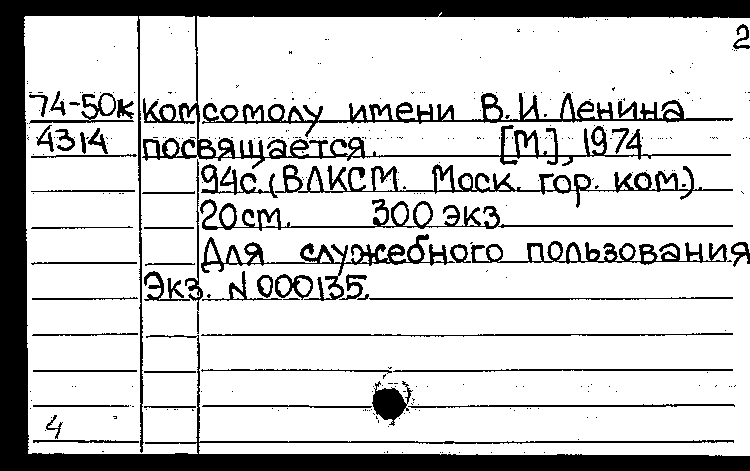 2
74-50к комсомолу имени В.И. Ленина
4314 посвящается. [М.], 1974.
94с. (ВЛКСМ. Моск. гор. ком.).
20 см. 300 экз.
Для служебного пользования
Экз. N 000135.
4